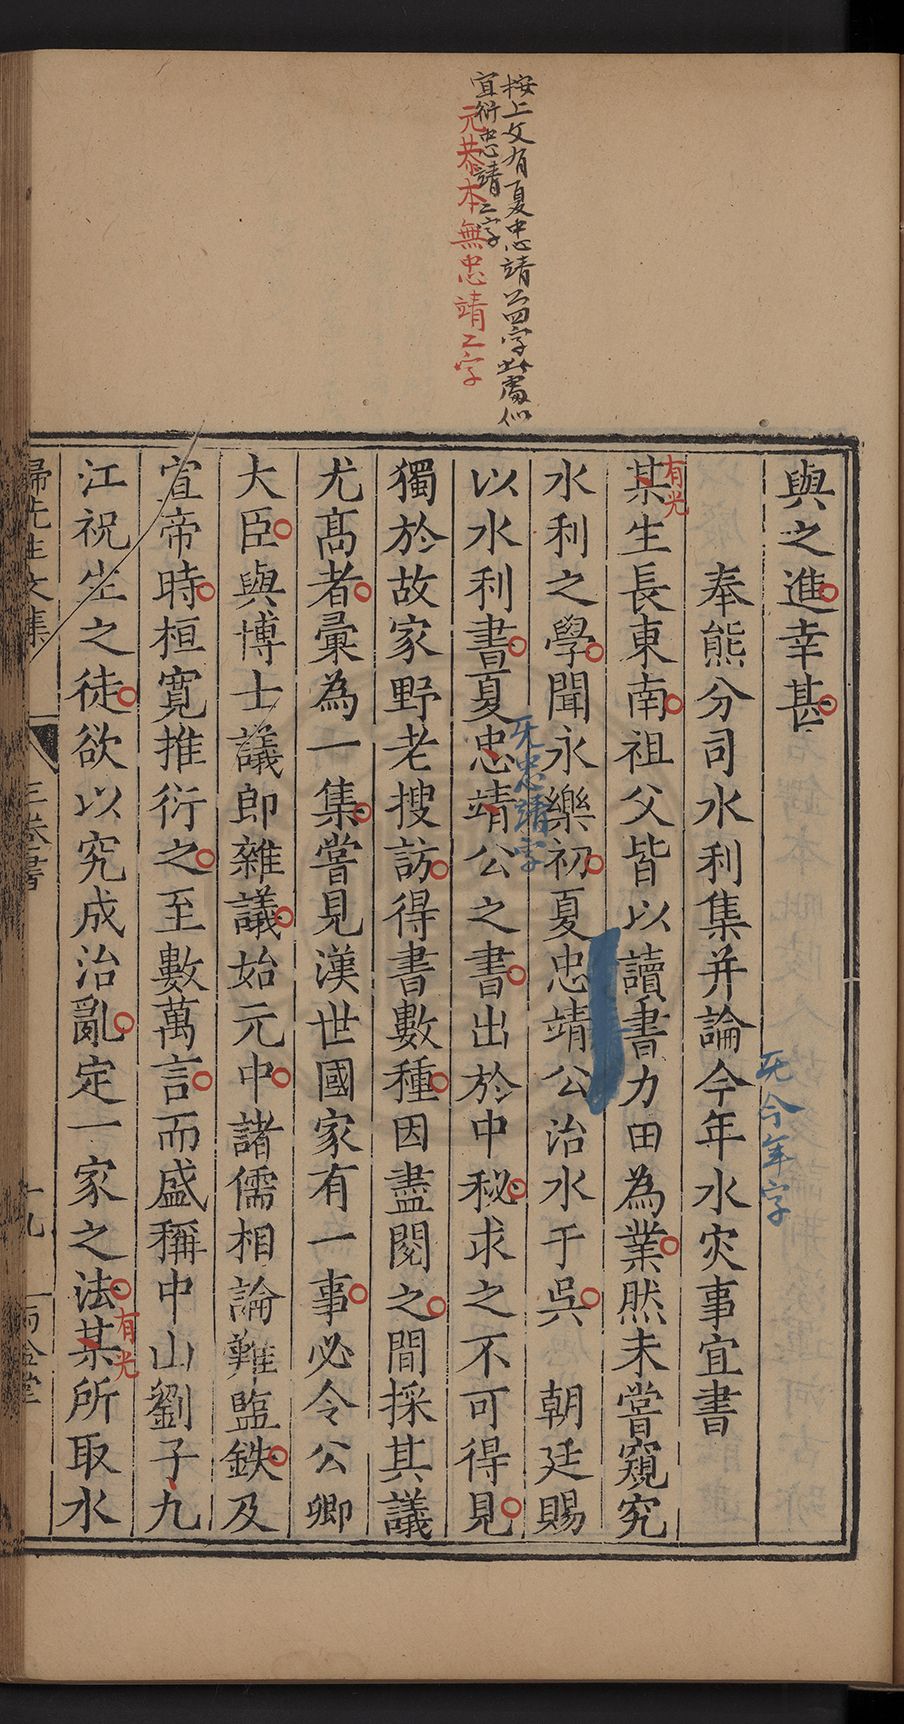 按上文有夏忠靖公四字此處似
宜衍忠靖二字
元恭本無忠靖二字
與之進幸甚
奉熊分司水利集并論今年水灾事宜書
无今年字
某生長東南祖父皆以讀書力田為業然未嘗窺究
有光
水利之學聞永樂初夏忠靖公治水于吳 朝廷賜
无忠靖字
以水利書夏忠靖公之書出於中秘求之不可得見
獨於故家野老搜訪得書數種因盡閱之間採其議
尤髙者彙為一集嘗見漢世國家有一事必令公卿
大臣與博士議郎雜議始元中諸儒相論難鹽鉄及
宣帝時桓寬推衍之至數萬言而盛稱中山劉子九
江祝生之徒欲以究成治亂定一家之法某所取水
有光
歸先生文集
三卷書
十九